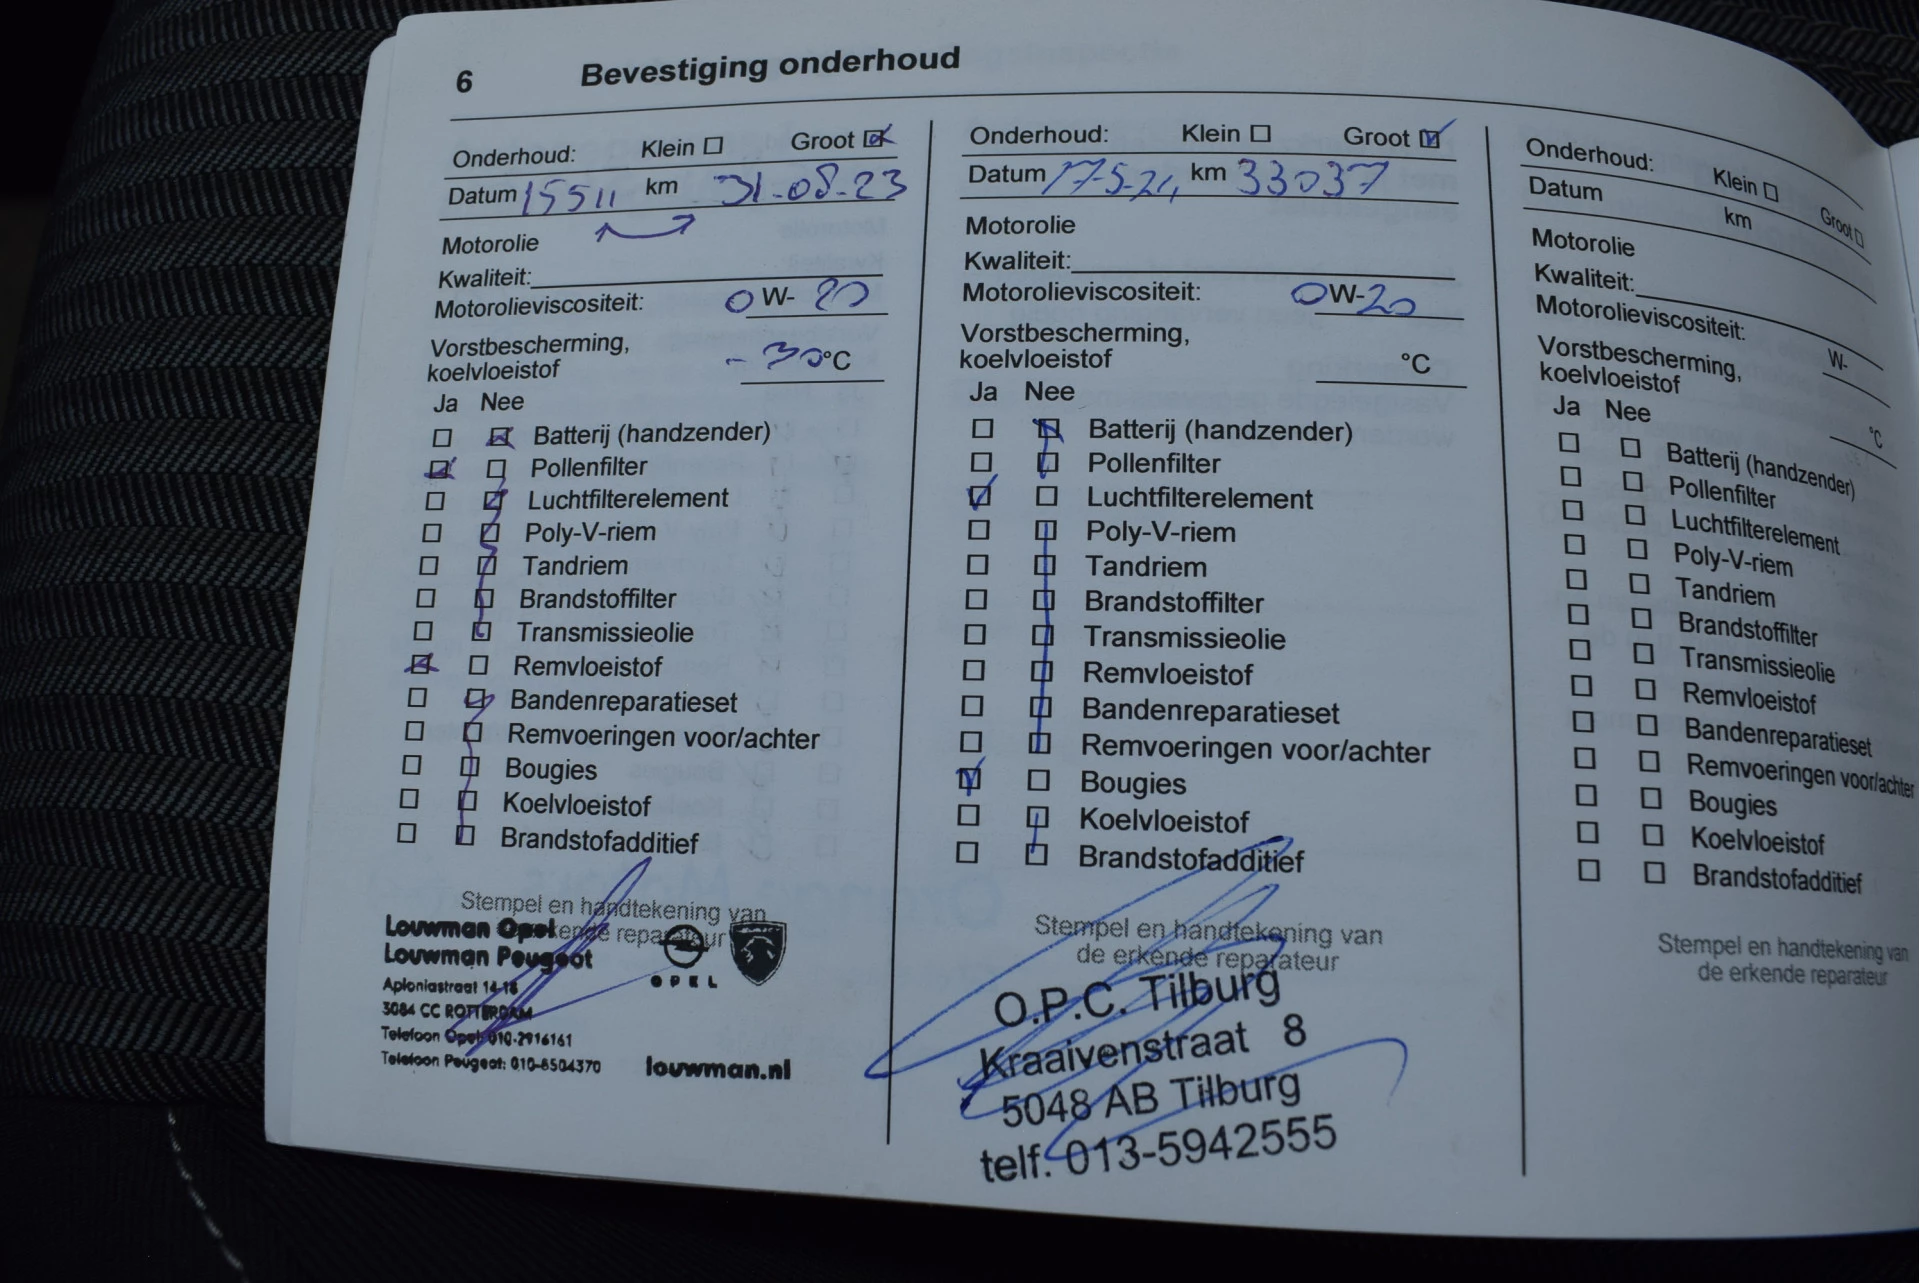 6 Bevestiging onderhoud
Onderhoud: Klein Groot
Datum 15511 km 31-08-23
Motorolie
Kwaliteit:
Motorolieviscositeit: 0 W- 20
Vorstbescherming,
koelvloeistof - 30 °C
Ja Nee
Batterij (handzender)
Pollenfilter
Luchtfilterelement
Poly-V-riem
Tandriem
Brandstoffilter
Transmissieolie
Remvloeistof
Bandenreparatieset
Remvoeringen voor/achter
Bougies
Koelvloeistof
Brandstofadditief
Stempel en handtekening van
erkende reparateur
Louwman Opel
Louwman Peugeot
Aploniastraat 14-18
3084 CC ROTTERDAM
Telefoon Opel: 010-2916161
Telefoon Peugeot: 010-8504370
OPEL
louwman.nl
Onderhoud: Klein Groot
Datum 17-5-24 km 33037
Motorolie
Kwaliteit:
Motorolieviscositeit: 0W-20
Vorstbescherming,
koelvloeistof °C
Ja Nee
Batterij (handzender)
Pollenfilter
Luchtfilterelement
Poly-V-riem
Tandriem
Brandstoffilter
Transmissieolie
Remvloeistof
Bandenreparatieset
Remvoeringen voor/achter
Bougies
Koelvloeistof
Brandstofadditief
Stempel en handtekening van
de erkende reparateur
O.P.C. Tilburg
Kraaivenstraat 8
5048 AB Tilburg
telf. 013-5942555
Onderhoud: Klein Groot
Datum km
Motorolie
Kwaliteit:
Motorolieviscositeit: W-
Vorstbescherming,
koelvloeistof °C
Ja Nee
Batterij (handzender)
Pollenfilter
Luchtfilterelement
Poly-V-riem
Tandriem
Brandstoffilter
Transmissieolie
Remvloeistof
Bandenreparatieset
Remvoeringen voor/achter
Bougies
Koelvloeistof
Brandstofadditief
Stempel en handtekening van
de erkende reparateur